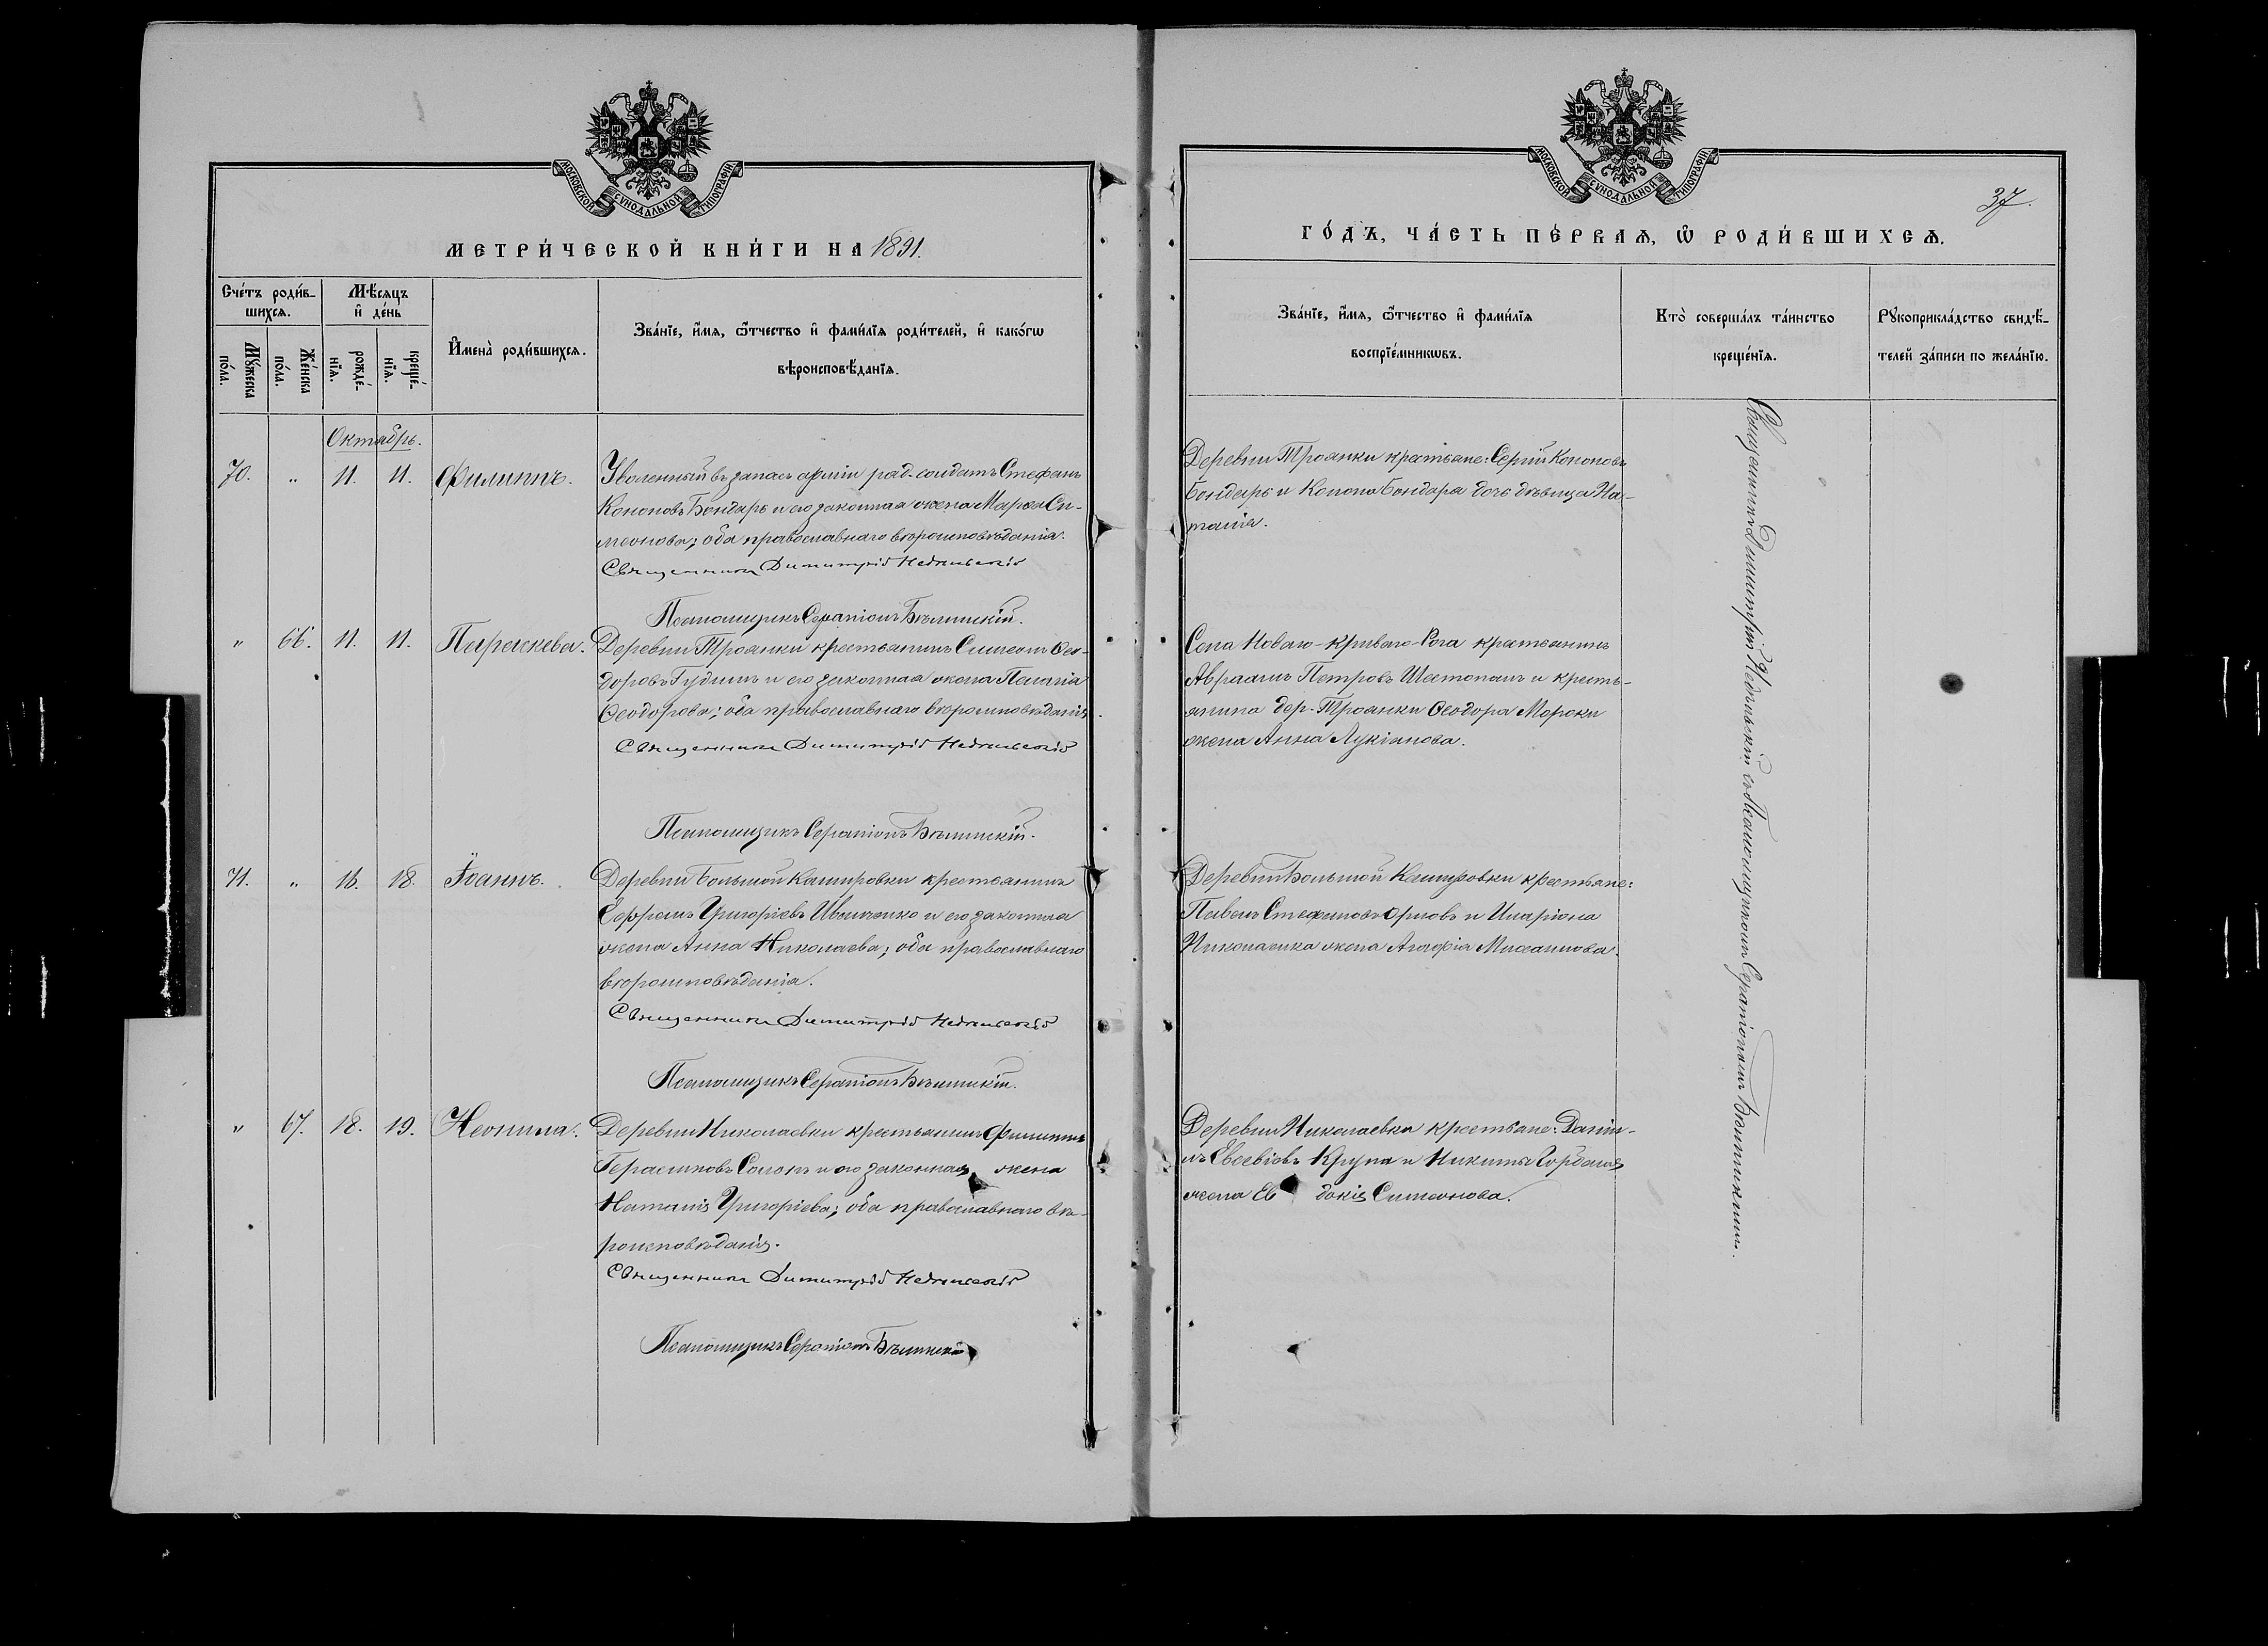 МОСКОВСКОЙ СѴНОДАЛЬНОЙ ТИПОГРАФІИ
МЕТРИ́ЧЕСКОЙ КНИ́ГИ НА 1891.
Счéтъ роди́в-
шихся.
Мѣ́сяцъ
и҆ дéнь
Мꙋ́жеска
пóла.
Жéнска
пóла.
рождé-
нїя.
крещé-
нїя.
И҆менà роди́вшихся.
Звáнїе, и҆́мя, ѻ҆́тчество и҆ фами́лїя роди́телей, и҆ какóгѡ
вѣроисповѣ́данїя.
Октябрь.
70. „ 11. 11. Филиппъ.
Уволенный въ запасъ арміи ряд. солдатъ Стефанъ
Кононовъ Бондарь и его законная жена Марѳа Си-
меонова; оба православнаго вѣроисповѣданія.
Священникъ Димитрій Недѣльскій
Псаломщикъ Серапіонъ Бѣлинскій.
„ 66. 11. 11. Параскева.
Деревни Троянки крестьянинъ Симеонъ Ѳео-
доровъ Гудимъ и его законная жена Пелагія
Ѳеодорова; оба православнаго вѣроисповѣданія.
Священникъ Димитрій Недѣльскій
Псаломщикъ Серапіонъ Бѣлинскій.
71. „ 16. 18. Іоаннъ.
Деревни Большой Кашировки крестьянинъ
Ефремъ Григоріевъ Ивличенко и его законная
жена Анна Николаева; оба православнаго
вѣроисповѣданія.
Священникъ Димитрій Недѣльскій
Псаломщикъ Серапіонъ Бѣлинскій.
„ 67. 18. 19. Неонила.
Деревни Николаевки крестьянинъ Филиппъ
Герасимовъ Солопъ и его законная жена
Наталія Григоріева; оба православнаго вѣ-
роисповѣданія.
Священникъ Димитрій Недѣльскій
Псаломщикъ Серапіонъ Бѣлинскій
МОСКОВСКОЙ СѴНОДАЛЬНОЙ ТИПОГРАФІИ
37.
ГÓДЪ, ЧÁСТЬ ПÉРВАЯ, Ѽ РОДИ́ВШИХСЯ.
Звáнїе, и҆́мя, ѻ҆́тчество и҆ фами́лїя
воспрїéмникѡвъ.
Ктò совершáлъ тáинство
крещéнїя.
Рꙋкоприклáдство свидѣ́-
телей зáписи по желáнїю.
Деревни Троянки крестьяне: Сергій Кононовъ
Бондарь и Конона Бондаря дочь дѣвица На-
талія.
Села Новаго-Криваго-Рога крестьянинъ
Авраамъ Петровъ Шестопалъ и кресть-
янина дер. Троянки Ѳеодора Мороки
жена Анна Лукіанова.
Деревни Большой Кашировки крестьяне:
Павелъ Стефановъ Орловъ и Иларіона
Николаенка жена Агафія Михаилова.
Деревни Николаевки крестьяне: Даніи-
лъ Евсевіовъ Крупа и Никиты Горбаня
жена Евдокія Симеонова.
Священникъ Димитрій Недѣльскій съ Псаломщикомъ Серапіономъ Бѣлинскимъ.